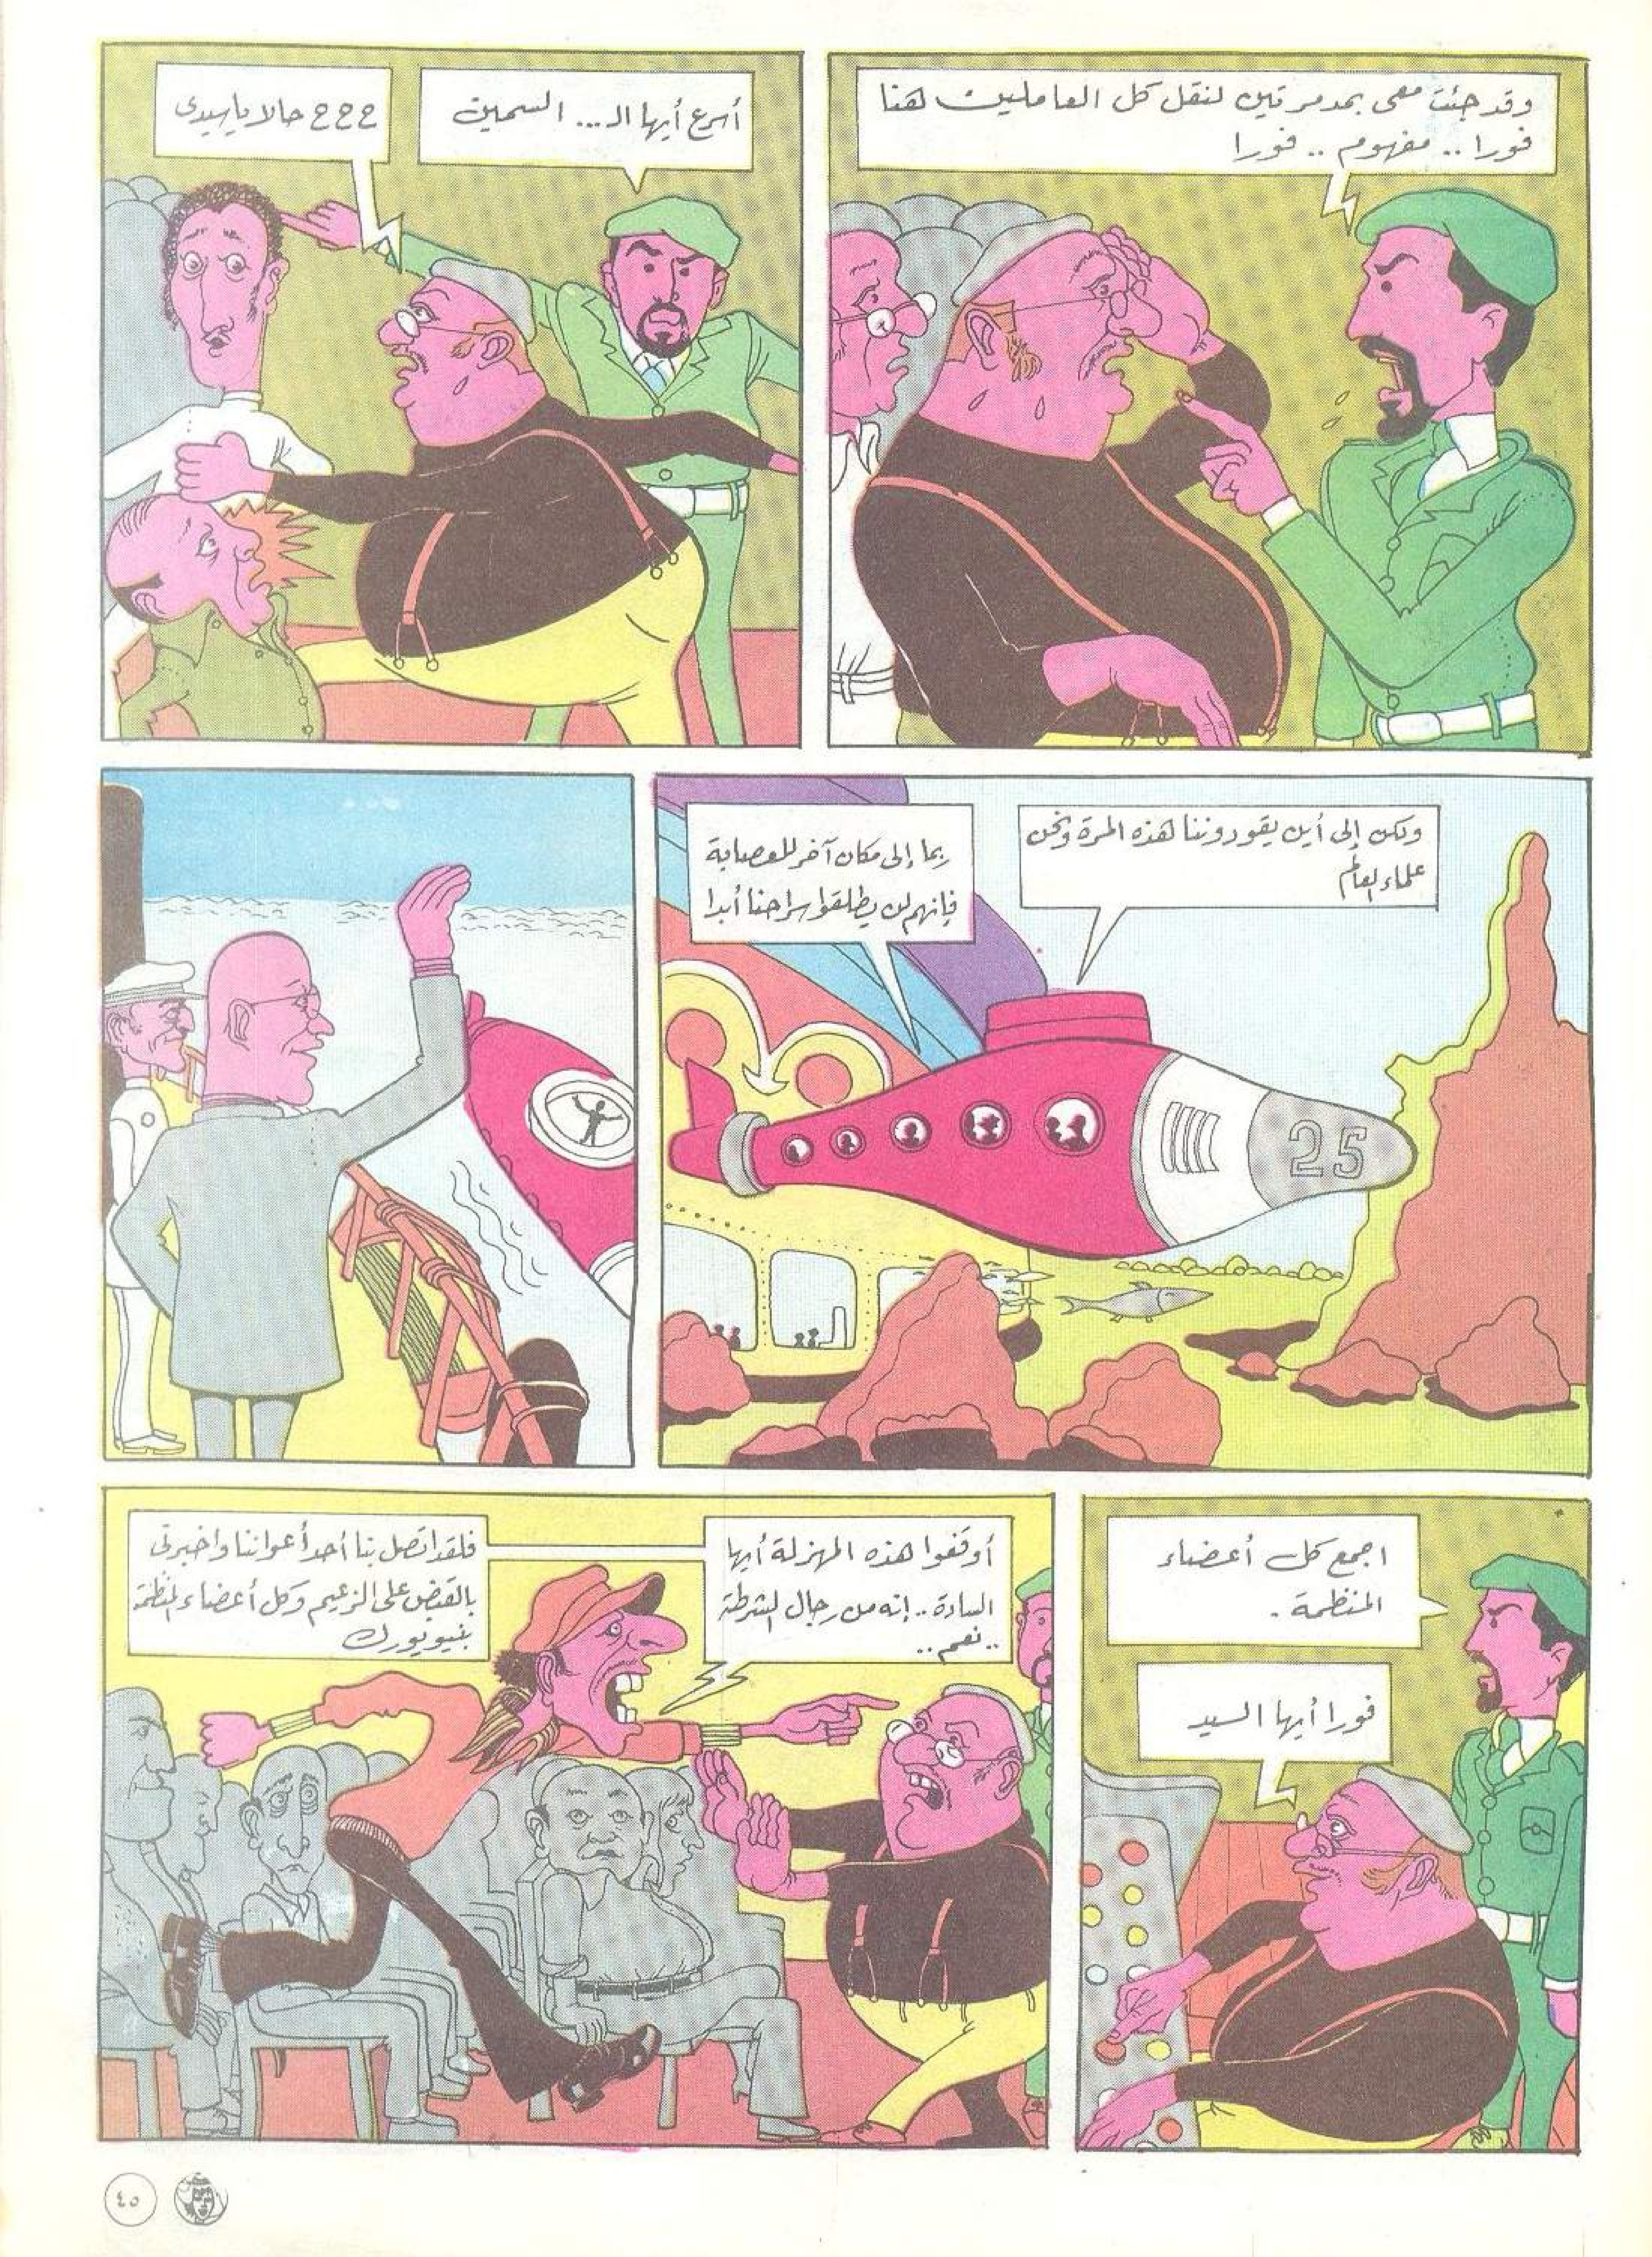 وقد جئت معى بمدمرتين لنقل كل العاملين هنا
فورا .. مفهوم .. فورا
أسرع أيها الـ ... السمين
ح ح ح حالا ياسيدى
ولكن إلى أين يقودوننا هذه المرة ونحن
علماء العالم
ربما إلى مكان آخر للعصابة
فإنهم لن يطلقوا سراحنا أبدا
25
اجمع كل أعضاء
المنظمة .
فورا أيها السيد
أوقفوا هذه المهزلة أيها
السادة .. إنه من رجال الشرطة
.. نعم ..
فلقد اتصل بنا أحد أعواننا واخبرنى
بالقبض على الزعيم وكل أعضاء المنظمة
بنيويورك
٤٥